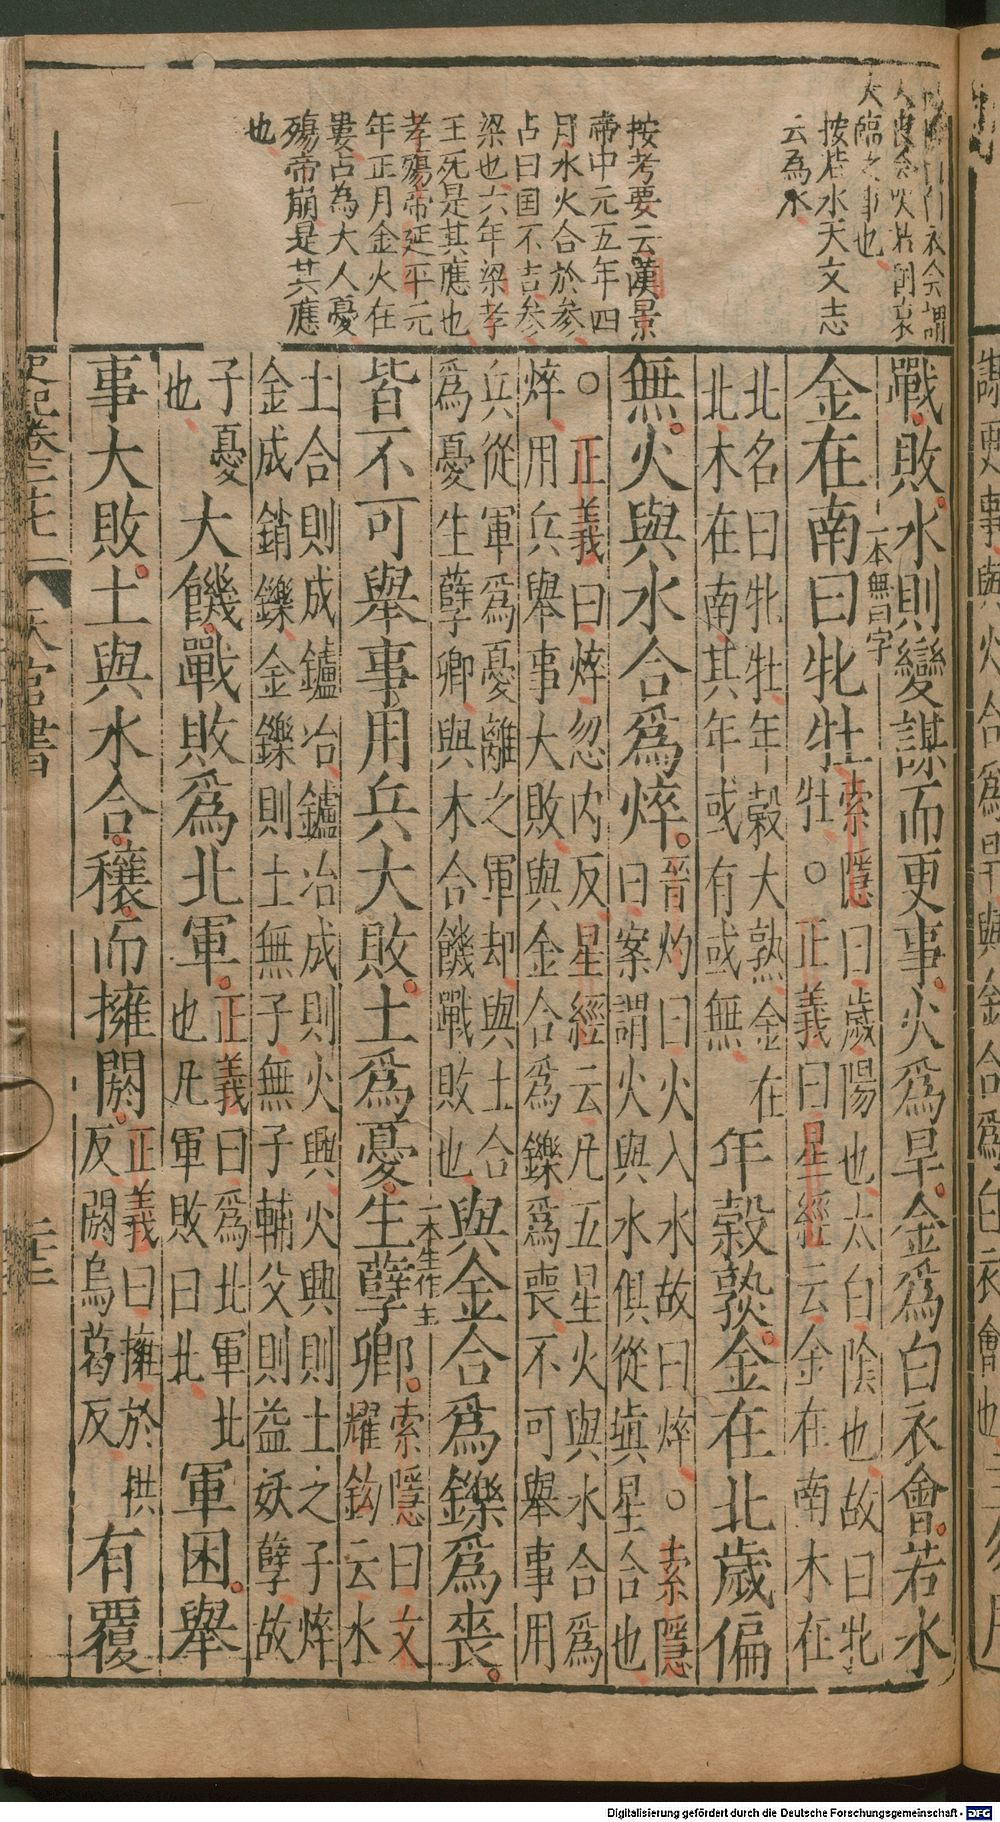 大臨之事也
按若水天文志
云為水
按考要云漢景
帝中元五年四
月水火合於參
占曰国不吉參
梁也六年梁孝
王死是其應也
孝殤帝延平元
年正月金火在
婁占為大人憂
殤帝崩是其應
也
戰敗水則變謀而更事火爲旱金爲白衣會若水
金在南曰牝牡
一本無曰字
索隱曰歲陽也太白陰也故曰牝
牡○正義曰星經云金在南木在
北名曰牝牡年榖大熟金在
北木在南其年或有或無
年榖熟金在北歲偏
無火與水合爲焠
晉灼曰火入水故曰焠○索隱
曰案謂火與水俱從塡星合也
○正義曰焠忽内反星經云凡五星火與水合爲
焠用兵舉事大敗與金合爲鑠爲喪不可舉事用
兵從軍爲憂離之軍却與土合
爲憂生孽卿與木合饑戰敗也
與金合爲鑠爲喪
皆不可舉事用兵大敗土爲憂生孽卿
一本生作主
索隱曰文
耀鈎云水
土合則成鑪冶鑪冶成則火興火興則土之子焠
金成銷鑠金鑠則土無子無子輔父則益妖孽故
子憂
也
大饑戰敗爲北軍
正義曰爲北軍北
也凡軍敗曰北
軍困舉
事大敗土與水合穰而擁閼
正義曰擁於拱
反閼烏葛反
有覆
天官書
Digitalisierung gefördert durch die Deutsche Forschungsgemeinschaft - DFG